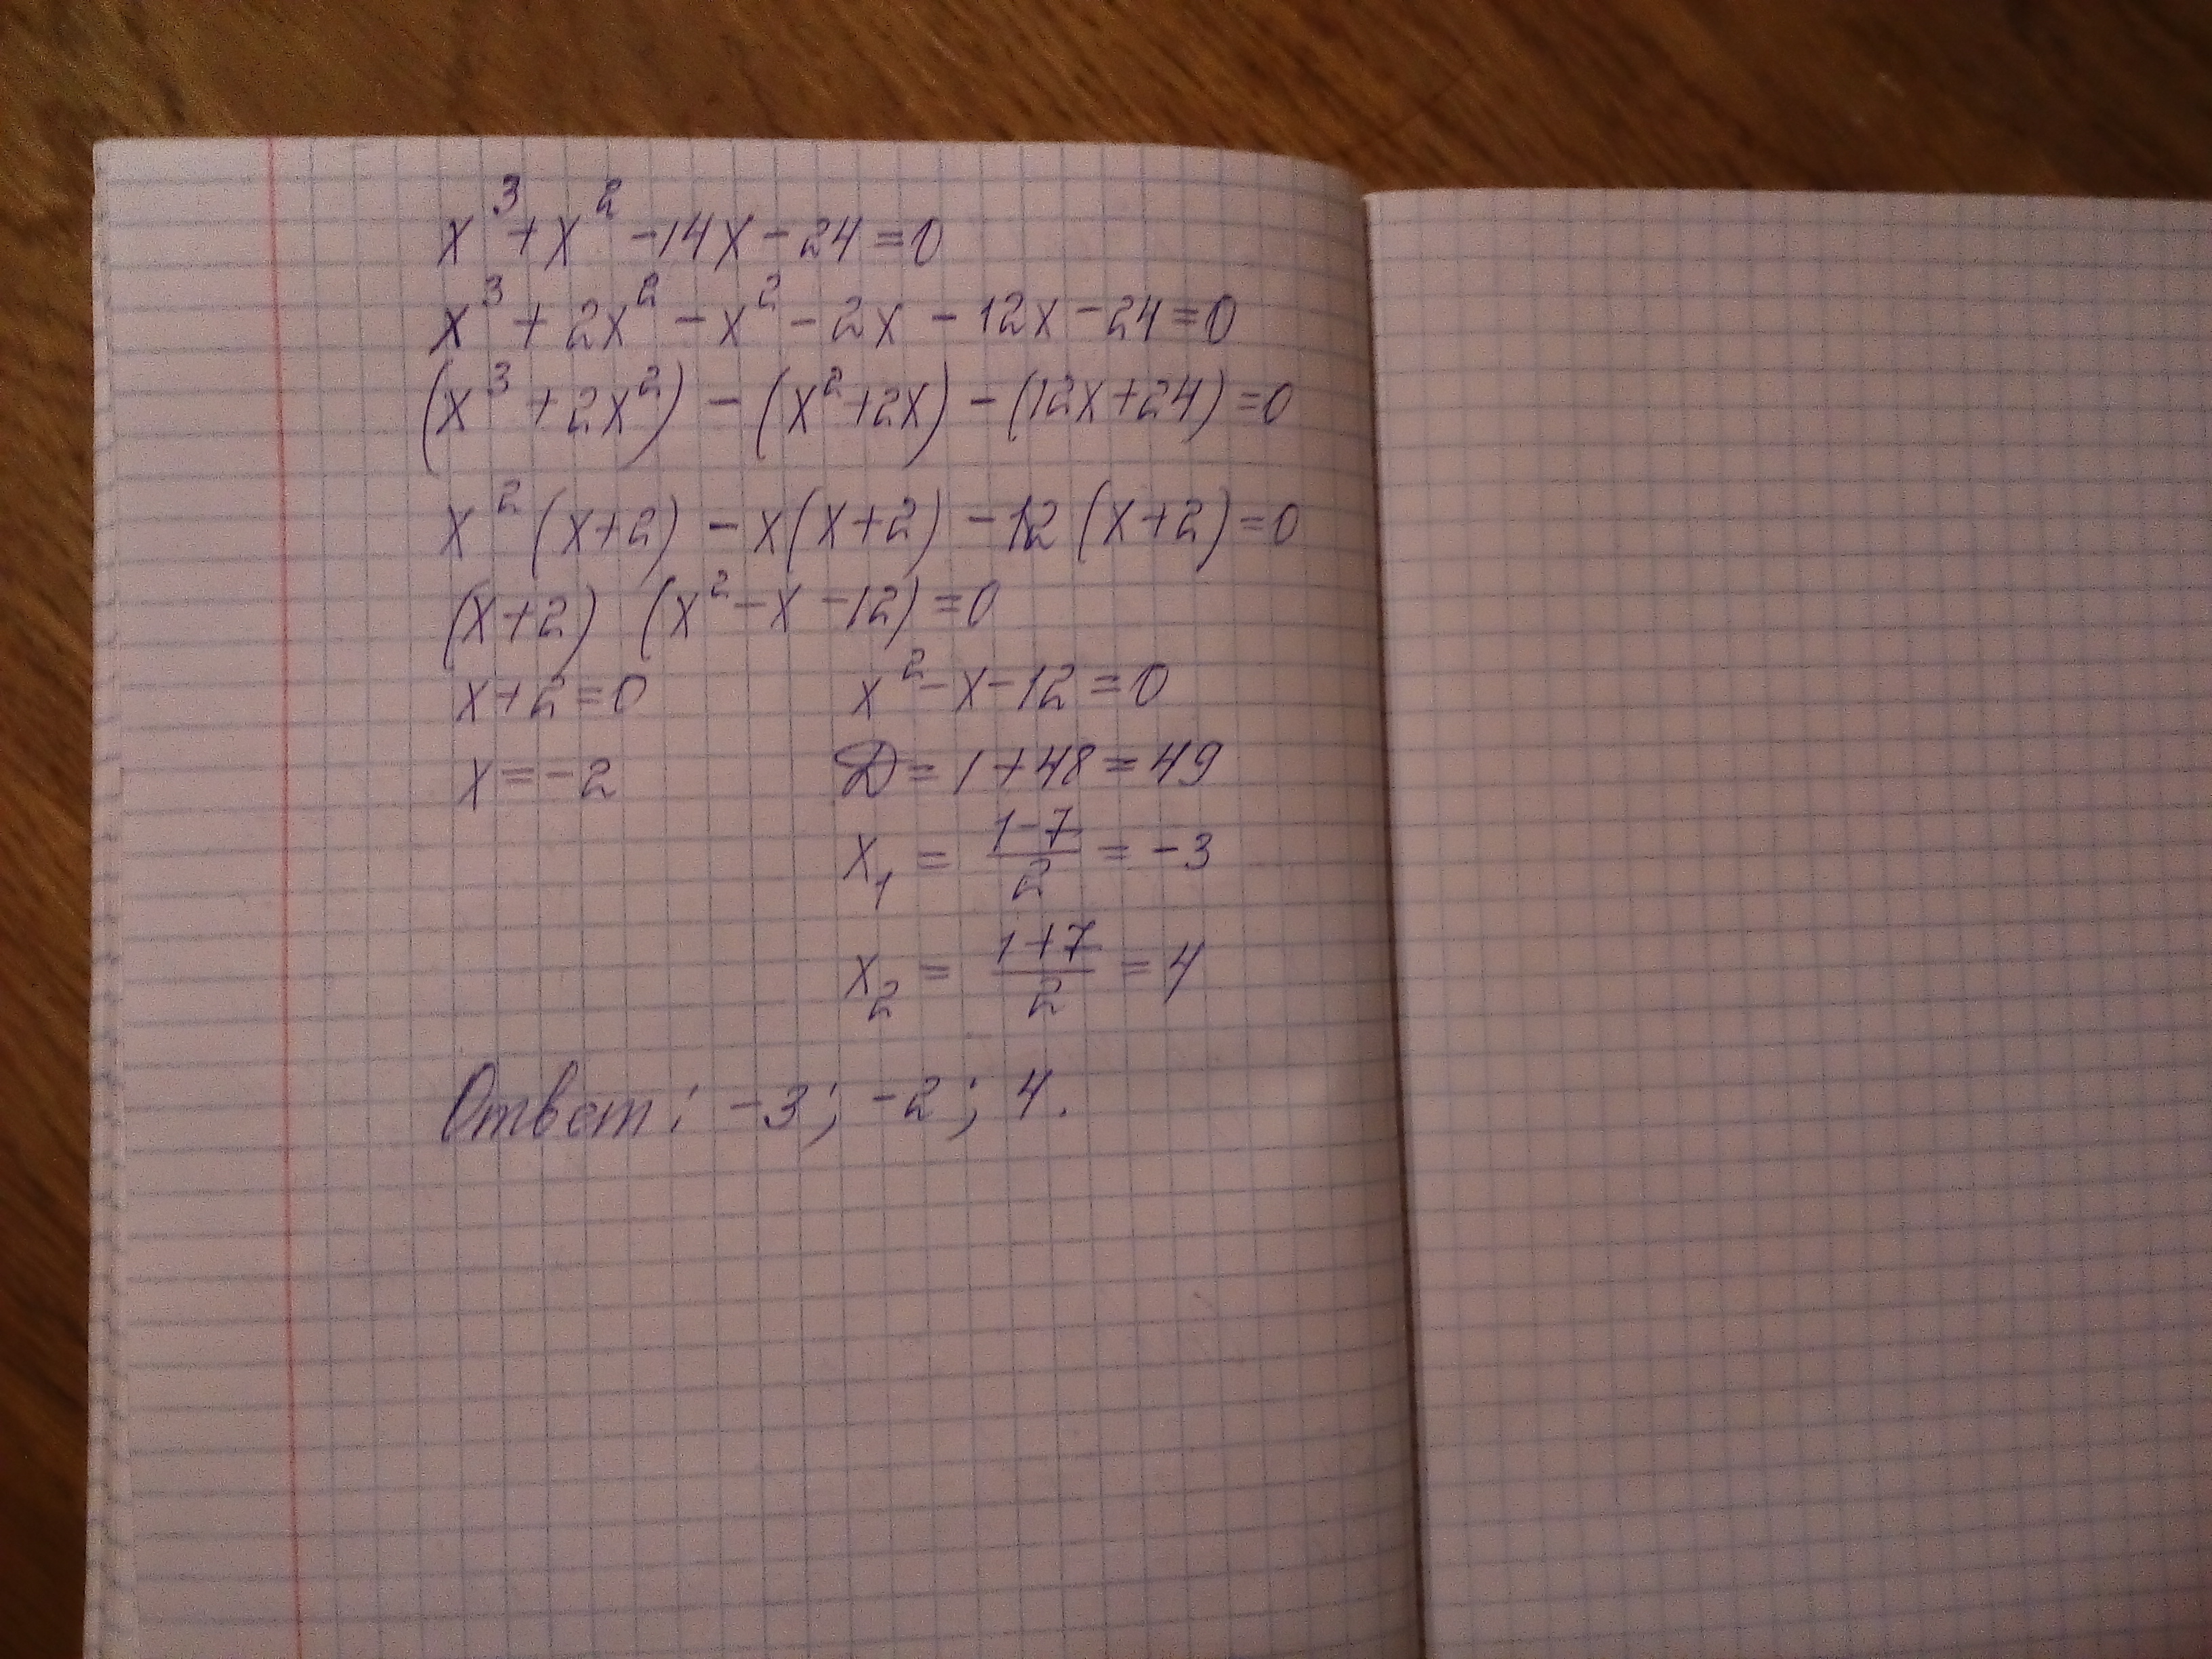 x³ + x² - 14x - 24 = 0
x³ + 2x² - x² - 2x - 12x - 24 = 0
(x³ + 2x²) - (x² + 2x) - (12x + 24) = 0
x² (x + 2) - x(x + 2) - 12 (x + 2) = 0
(x + 2) (x² - x - 12) = 0
x + 2 = 0 x² - x - 12 = 0
x = -2 D = 1 + 48 = 49
x₁ = (1 - 7)/2 = -3
x₂ = (1 + 7)/2 = 4
Ответ: -3; -2; 4.